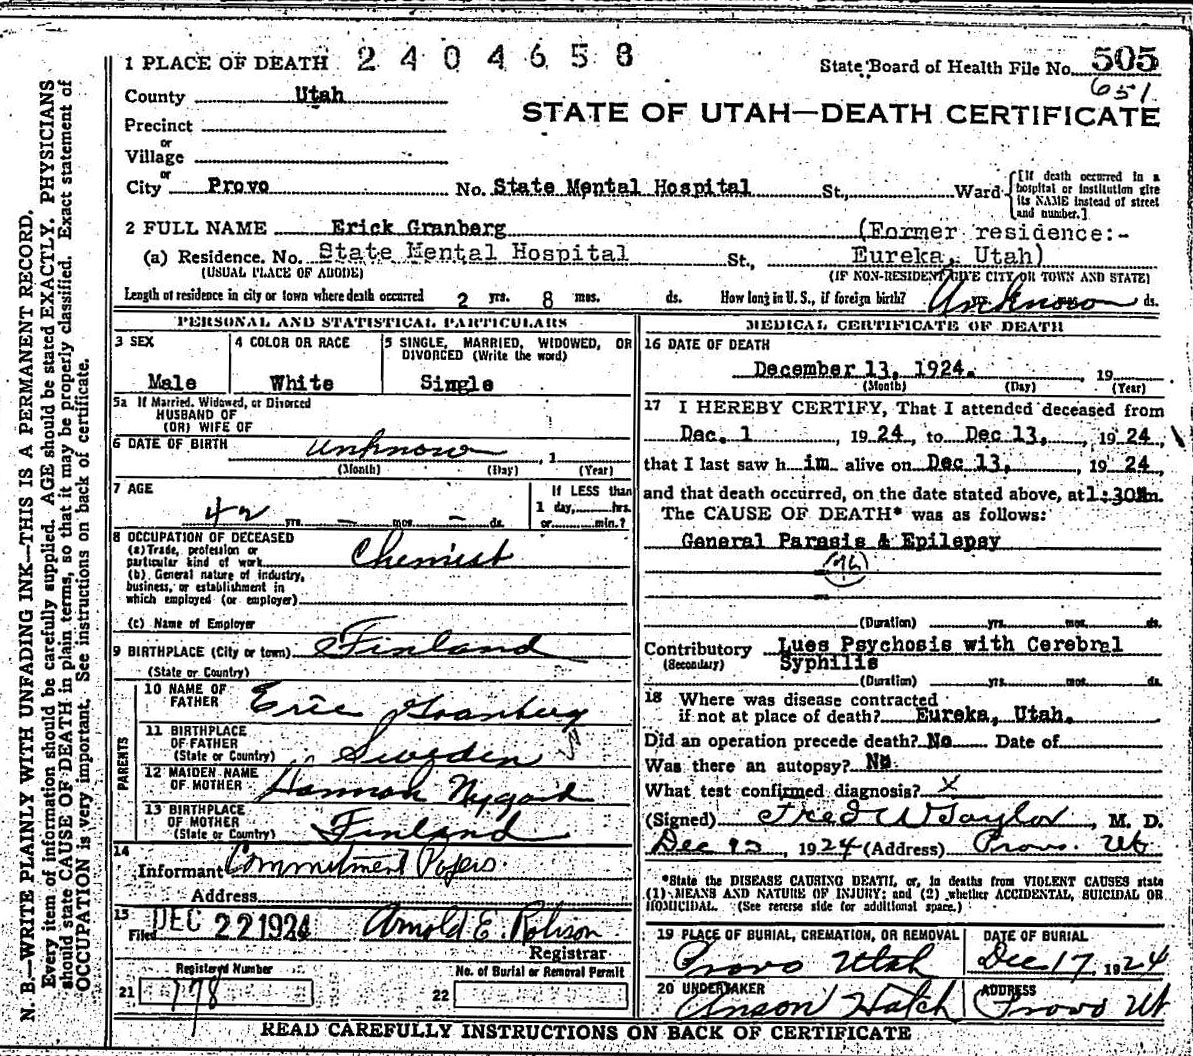 1 PLACE OF DEATH 2 4 0 4 6 5 8
State Board of Health File No. 505
651
County Utah
STATE OF UTAH—DEATH CERTIFICATE
Precinct
or
Village
or
City Provo No. State Mental Hospital St., Ward
[If death occurred in a hospital or institution give its NAME instead of street and number.]
2 FULL NAME Erick Granberg (Former residence:-
(a) Residence. No. State Mental Hospital St., Eureka, Utah)
(USUAL PLACE OF ABODE) (IF NON-RESIDENT GIVE CITY OR TOWN AND STATE)
Length of residence in city or town where death occurred 2 yrs. 8 mos. ds. How long in U. S., if foreign birth? Unknown ds.
PERSONAL AND STATISTICAL PARTICULARS
3 SEX
Male
4 COLOR OR RACE
White
5 SINGLE, MARRIED, WIDOWED, OR DIVORCED (Write the word)
Single
5a If Married, Widowed, or Divorced
HUSBAND OF
(OR) WIFE OF
6 DATE OF BIRTH Unknown , 1
(Month) (Day) (Year)
7 AGE
42 yrs. — mos. — ds.
If LESS than
1 day, hrs.
or min.?
8 OCCUPATION OF DECEASED
(a) Trade, profession or
particular kind of work Chemist
(b) General nature of industry,
business, or establishment in
which employed (or employer)
(c) Name of Employer
9 BIRTHPLACE (City or town) Finland
(State or Country)
PARENTS
10 NAME OF FATHER Eric Granberg
11 BIRTHPLACE OF FATHER
(State or Country) Sweden
12 MAIDEN NAME OF MOTHER Hannah Nygard
13 BIRTHPLACE OF MOTHER
(State or Country) Finland
14
Informant Commitment Papers
Address
15
Filed DEC 22 1924 Arnold E. Robison
Registrar
Registered Number
21 178
No. of Burial or Removal Permit
22
MEDICAL CERTIFICATE OF DEATH
16 DATE OF DEATH
December 13, 1924. , 19
(Month) (Day) (Year)
17 I HEREBY CERTIFY, That I attended deceased from
Dec. 1 , 19 24, to Dec 13, , 19 24,
that I last saw h im alive on Dec 13, , 19 24,
and that death occurred, on the date stated above, at 1:30 m.
The CAUSE OF DEATH* was as follows:
General Parasis & Epilepsy
(76)
(Duration) yrs. mos. ds.
Contributory Lues Psychosis with Cerebral
(Secondary) Syphilis
(Duration) yrs. mos. ds.
18 Where was disease contracted
if not at place of death? Eureka, Utah.
Did an operation precede death? No Date of
Was there an autopsy? No
What test confirmed diagnosis? X
(Signed) Fred W Taylor , M. D.
Dec , 1924 (Address) Provo. Ut
*State the DISEASE CAUSING DEATH, or, in deaths from VIOLENT CAUSES state
(1) MEANS AND NATURE OF INJURY; and (2) whether ACCIDENTAL, SUICIDAL OR
HOMICIDAL. (See reverse side for additional space.)
19 PLACE OF BURIAL, CREMATION, OR REMOVAL
Provo Utah
DATE OF BURIAL
Dec 17, 1924
20 UNDERTAKER
Anson Hatch
ADDRESS
Provo Ut
READ CAREFULLY INSTRUCTIONS ON BACK OF CERTIFICATE
N. B.—WRITE PLAINLY WITH UNFADING INK—THIS IS A PERMANENT RECORD.
Every item of information should be carefully supplied. AGE should be stated EXACTLY. PHYSICIANS
should state CAUSE OF DEATH in plain terms, so that it may be properly classified. Exact statement of
OCCUPATION is very important. See instructions on back of certificate.